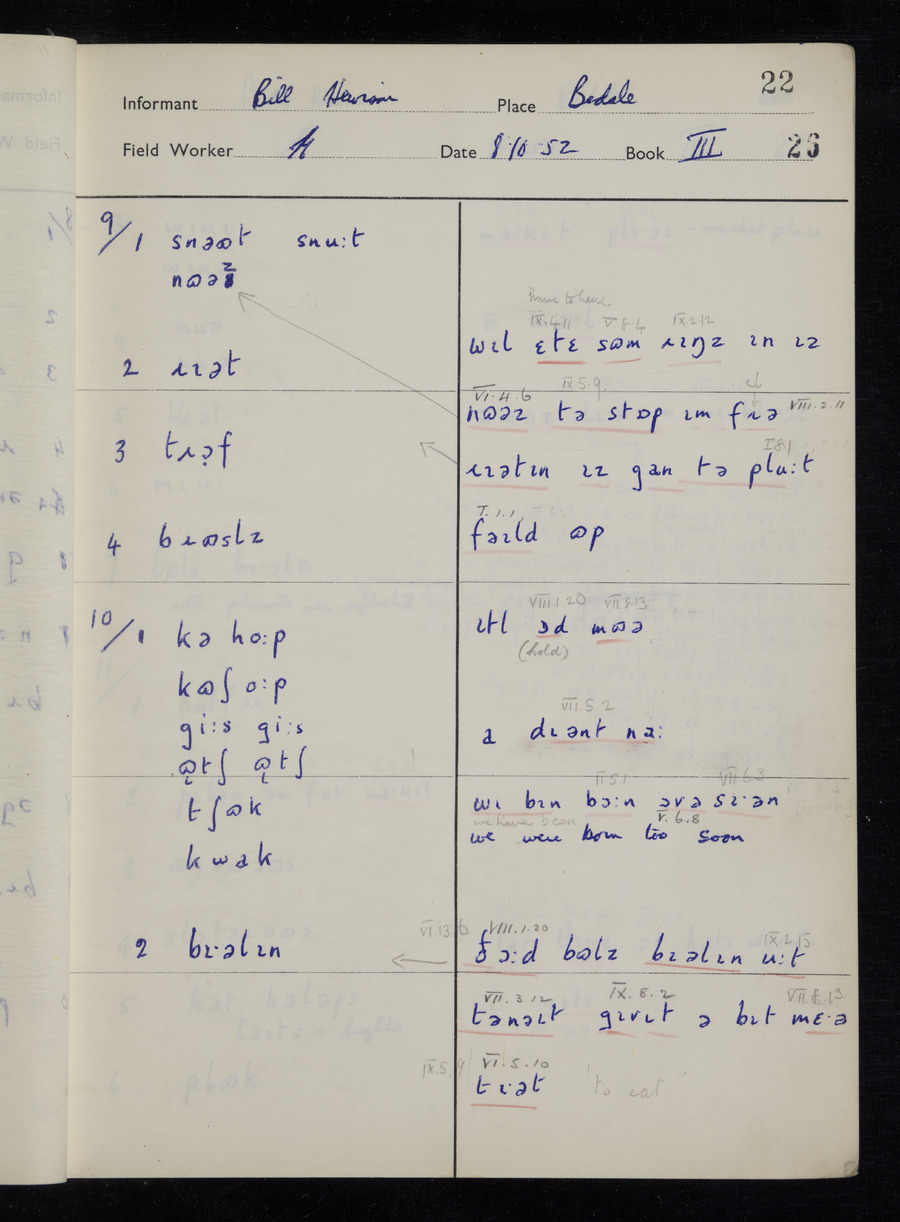 22
Informant Bill Place Bedale
Field Worker H Date 8·10·52 Book III 26
9/1 snəɷt snu:t
nɷəz
2 ɹɪət
3 tɹəf
4 bɹɷslz
10/1 kə ho:p
kɷʃ o:p
gi:s gi:s
ɷtʃ ɷtʃ
tʃɷk
kwak
2 bɪ·əlɪn
IX.4.11 V.8.4 IX.2.12
wɪl ɛtɛ sɷm ɹɪŋz ɪn ɪz
VI.4.6 IX.5.9 ↓
nɷəz tə stɒp ɪm fɹə VIII.2.11
I.8.1
ɹɪətɪn ɪz gan tə plu:t
I.1.1
fəɪld ɷp
VIII.1.20 VII.8.13
ɪtl ɔd mɷə
(hold)
VII.5.2
a dɪənt na:
II.5.1 VII.6.3
wɪ bɪn bɔ:n ɔvə sɪ·ən
we have been V.6.8
we were born too soon
VI.13.6 VIII.1.20 IX.2.15
ɔ:d bɷlz bɪəlɪn u:t
VII.3.12 IX.8.2 VII.8.13
tənəɪt gɪvɪt ə bɪt mɛ·ə
IX.5.9 VI.5.10
tɪ·ət 'to eat'